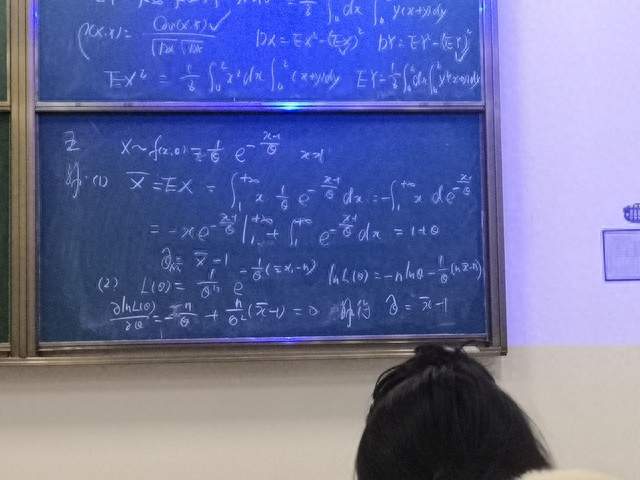 ρ(X,Y)= Cov(X,Y)/√DX √DY DX=EX²-(EX)² DY=EY²-(EY)²
EX² = 1/8 ∫₀² x² dx ∫₀² (x+y)dy EY=1/8 ∫₀² dx ∫₀² y(x+y)dy
X~f(x,θ)=1/θ e^{-(x-1)/θ} x>1
解:(1) X̄=EX = ∫₁^{+∞} x 1/θ e^{-(x-1)/θ} dx = -∫₁^{+∞} x de^{-(x-1)/θ}
= -xe^{-(x-1)/θ}|₁^{+∞} + ∫₁^{+∞} e^{-(x-1)/θ} dx = 1+θ
= X̄-1
(2) L(θ)= 1/θⁿ e^{-1/θ(Σxᵢ-n)} lnL(θ)=-nlnθ-1/θ(nx̄-n)
∂lnL(θ)/∂θ=-n/θ + n/θ²(x̄-1)=0 解得 θ̂=x̄-1